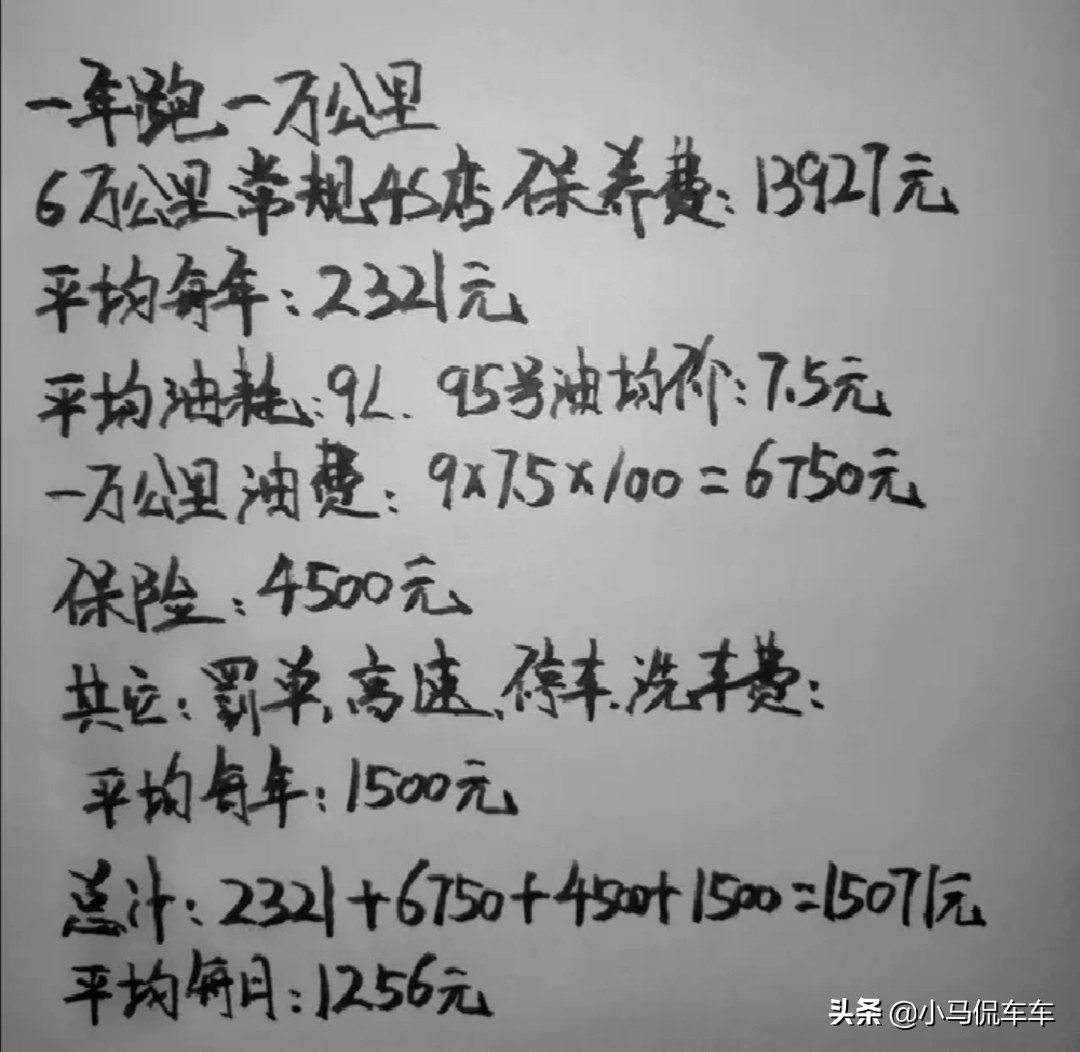 一年跑一万公里
6万公里常规4S店保养费:13927元
平均每年:2321元
平均油耗:9L.95号油均价:7.5元
一万公里油费:9×7.5×100=6750元
保险:4500元
其它:罚单,高速,停车.洗车费:
平均每年:1500元
总计:2321+6750+4500+1500=15071元
平均每月:1256元
头条 @小马侃车车